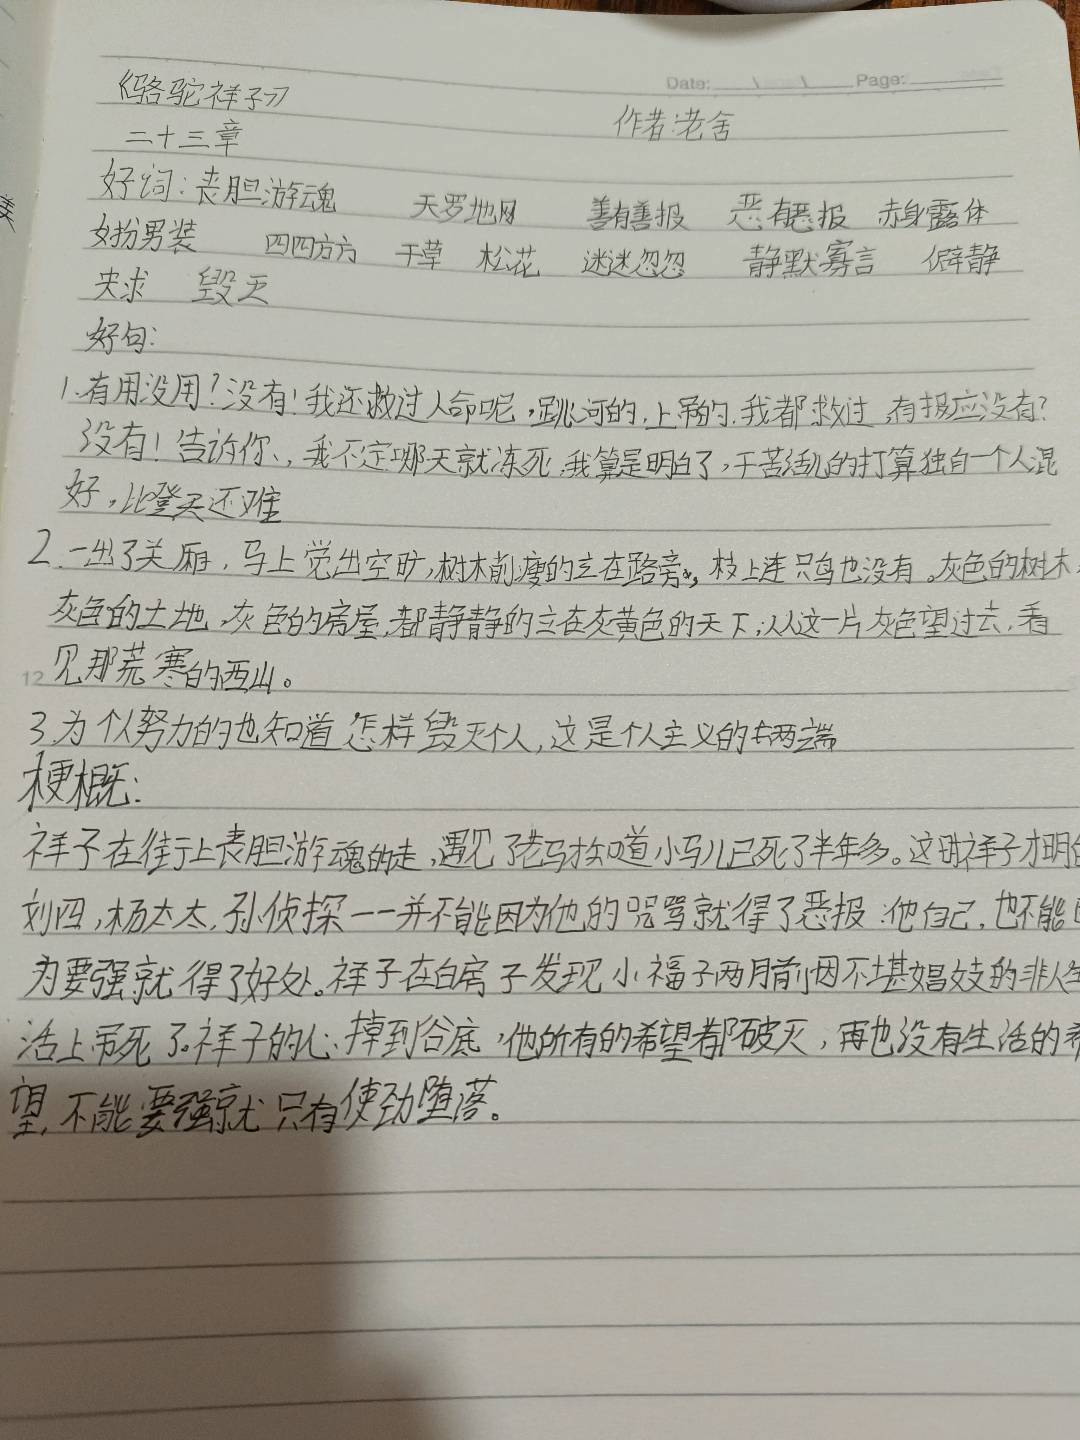 Date: Page:
《骆驼祥子》
作者:老舍
二十三章
好词:丧胆游魂 天罗地网 善有善报 恶有恶报 赤身露体
女扮男装 四四方方 干草 松花 迷迷忽忽 静默寡言 僻静
央求 毁灭
好句:
1.有用没用?没有!我还救过人命呢,跳河的,上吊的.我都救过,有报应没有?
没有!告诉你,我不定哪天就冻死,我算是明白了,干苦活儿的打算独自一个人混
好,比登天还难
2.一出了关厢,马上觉出空旷,树木削瘦的立在路旁,枝上连只鸟也没有。灰色的树木,
灰色的土地,灰色的房屋,都静静的立在灰黄色的天下;从这一片灰色望过去,看
12 见那荒寒的西山。
3.为个人努力的也知道怎样毁灭个人,这是个人主义的两端
梗概:
祥子在街上丧胆游魂的走,遇见了老马才知道小马儿已死了半年多。这时祥子才明白
刘四,杨太太,孙侦探一一并不能因为他的咒骂就得了恶报:他自己,也不能因
为要强就得了好处。祥子在白房子发现小福子两月前因不堪娼妓的非人生
活上吊死了。祥子的心掉到谷底,他所有的希望都破灭,再也没有生活的希
望,不能要强就只有使劲堕落。